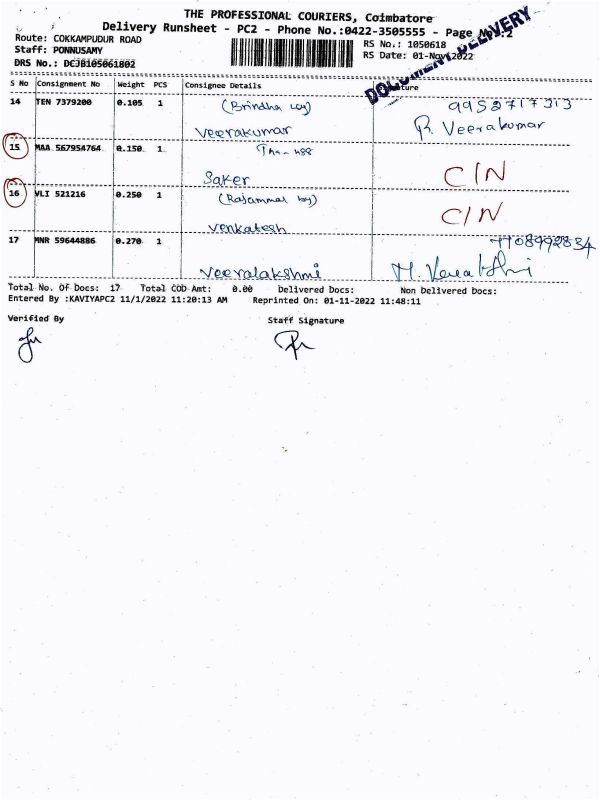 THE PROFESSIONAL COURIERS, Coimbatore
Delivery Runsheet - PC2 - Phone No.:0422-3505555 - Page No.:2
Route: COKKAMPUDUR ROAD
RS No.: 1050618
Staff: PONNUSAMY
RS Date: 01-Nov-2022
DRS No.: DCJB105061802
DOCUMENT DELIVERY
S No Consignment No Weight PCS Consignee Details
14 TEN 7379200 0.105 1 (Brindha
Veerakumar R. Veerakumar
15 MAA 567954764 0.150 1
Saker C/N
16 VLI 521216 0.250 1 (Rajammal
Venkatesh C/N
17 MNR 59644886 0.270 1
Veeralakshmi
Total No. Of Docs: 17 Total COD Amt: 0.00 Delivered Docs: Non Delivered Docs:
Entered By :KAVIYAPC2 11/1/2022 11:20:13 AM Reprinted On: 01-11-2022 11:48:11
Verified By Staff Signature